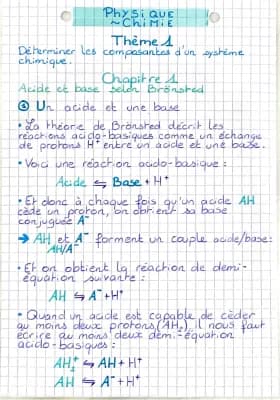 PHYSIQUE
~ CHIMIE
Thème 1
Déterminer les composantes d'un système
chimique.
Chapitre 1
Acide et base selon Brönsted
① Un acide et une base
• La théorie de Brönsted décrit les
réactions acido-basiques comme un échange
de protons H⁺ entre un acide et une base.
• Voici une réaction acido-basique :
Acide ⇆ Base + H⁺
• Et donc à chaque fois qu'un acide AH
cède un proton, on obtient sa base
conjuguée A⁻
→ AH et A⁻ forment un couple acide/base:
AH/A⁻
• Et on obtient la réaction de demi-
équation suivante :
AH ⇆ A⁻ + H⁺
• Quand un acide est capable de cèder
au moins deux protons (AH₂) il nous faut
écrire au moins deux demi-équation
acido-basiques :
AH₂⁺ ⇆ AH + H⁺
AH ⇆ A⁻ + H⁺